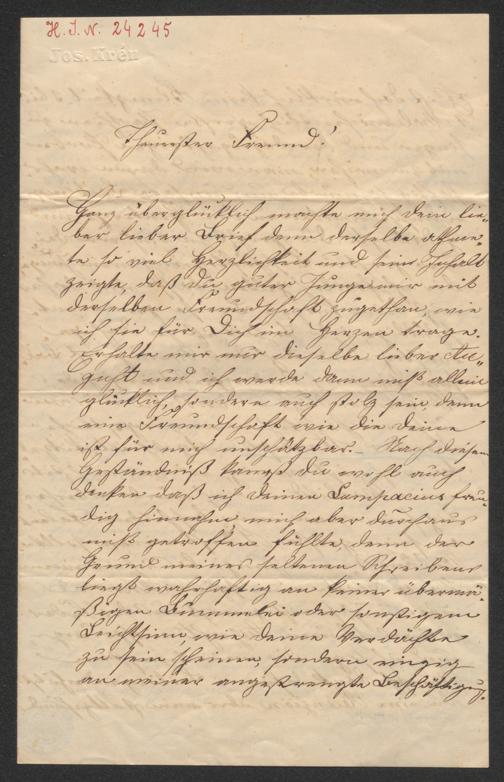 H. I. N. 24245
Jos. Krér
Theuerster Freund!
Ganz überglücklich machte mich dein lie-
ber lieber Brief denn derselbe athme-
te so viel Herzlichkeit und sein Inhalt
zeigte, daß du guter Junge mir mit
derselben Freundschaft zugethan, wie
ich sie für Dich im Herzen trage.
Erhalte mir nur dieselbe lieber Au-
gust und ich werde dann nicht allein
glücklich, sondern auch stolz sein denn
eine Freundschaft wie die deine
ist für mich unschätzbar. – Nach diesem
Geständniß kannst du wohl auch
denken daß ich deinen Lampacius freu-
dig hinnahm mich aber durchaus
nicht getroffen fühlte denn der
Grund meines seltenen Schreibens
liegt wahrhaftig an keiner übermä-
ßigen Bummelei oder sonstigem
Leichtsinn, wie deine Verdächte
zu sein scheinen, sondern einzig
an meiner angestrengte Beschäftigung.